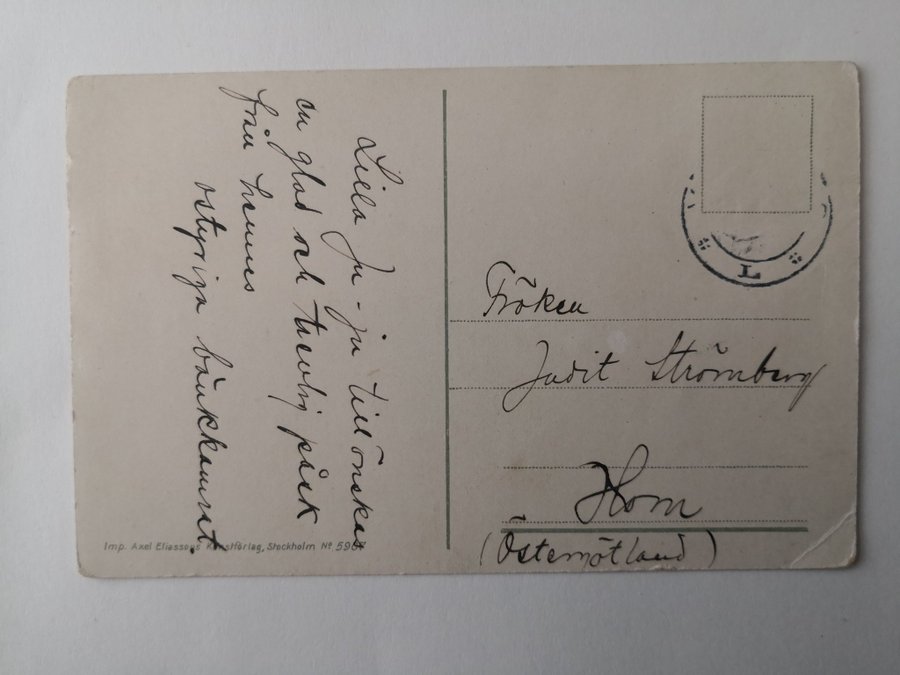 Lilla Ju-ju tillönskas
en glad och trevlig påsk
från hennes
ostyriga bänkkamrat.
Fröken
Judit Strömberg
Horn
(Östergötland)
L
Imp. Axel Eliassons Konstförlag, Stockholm Nº